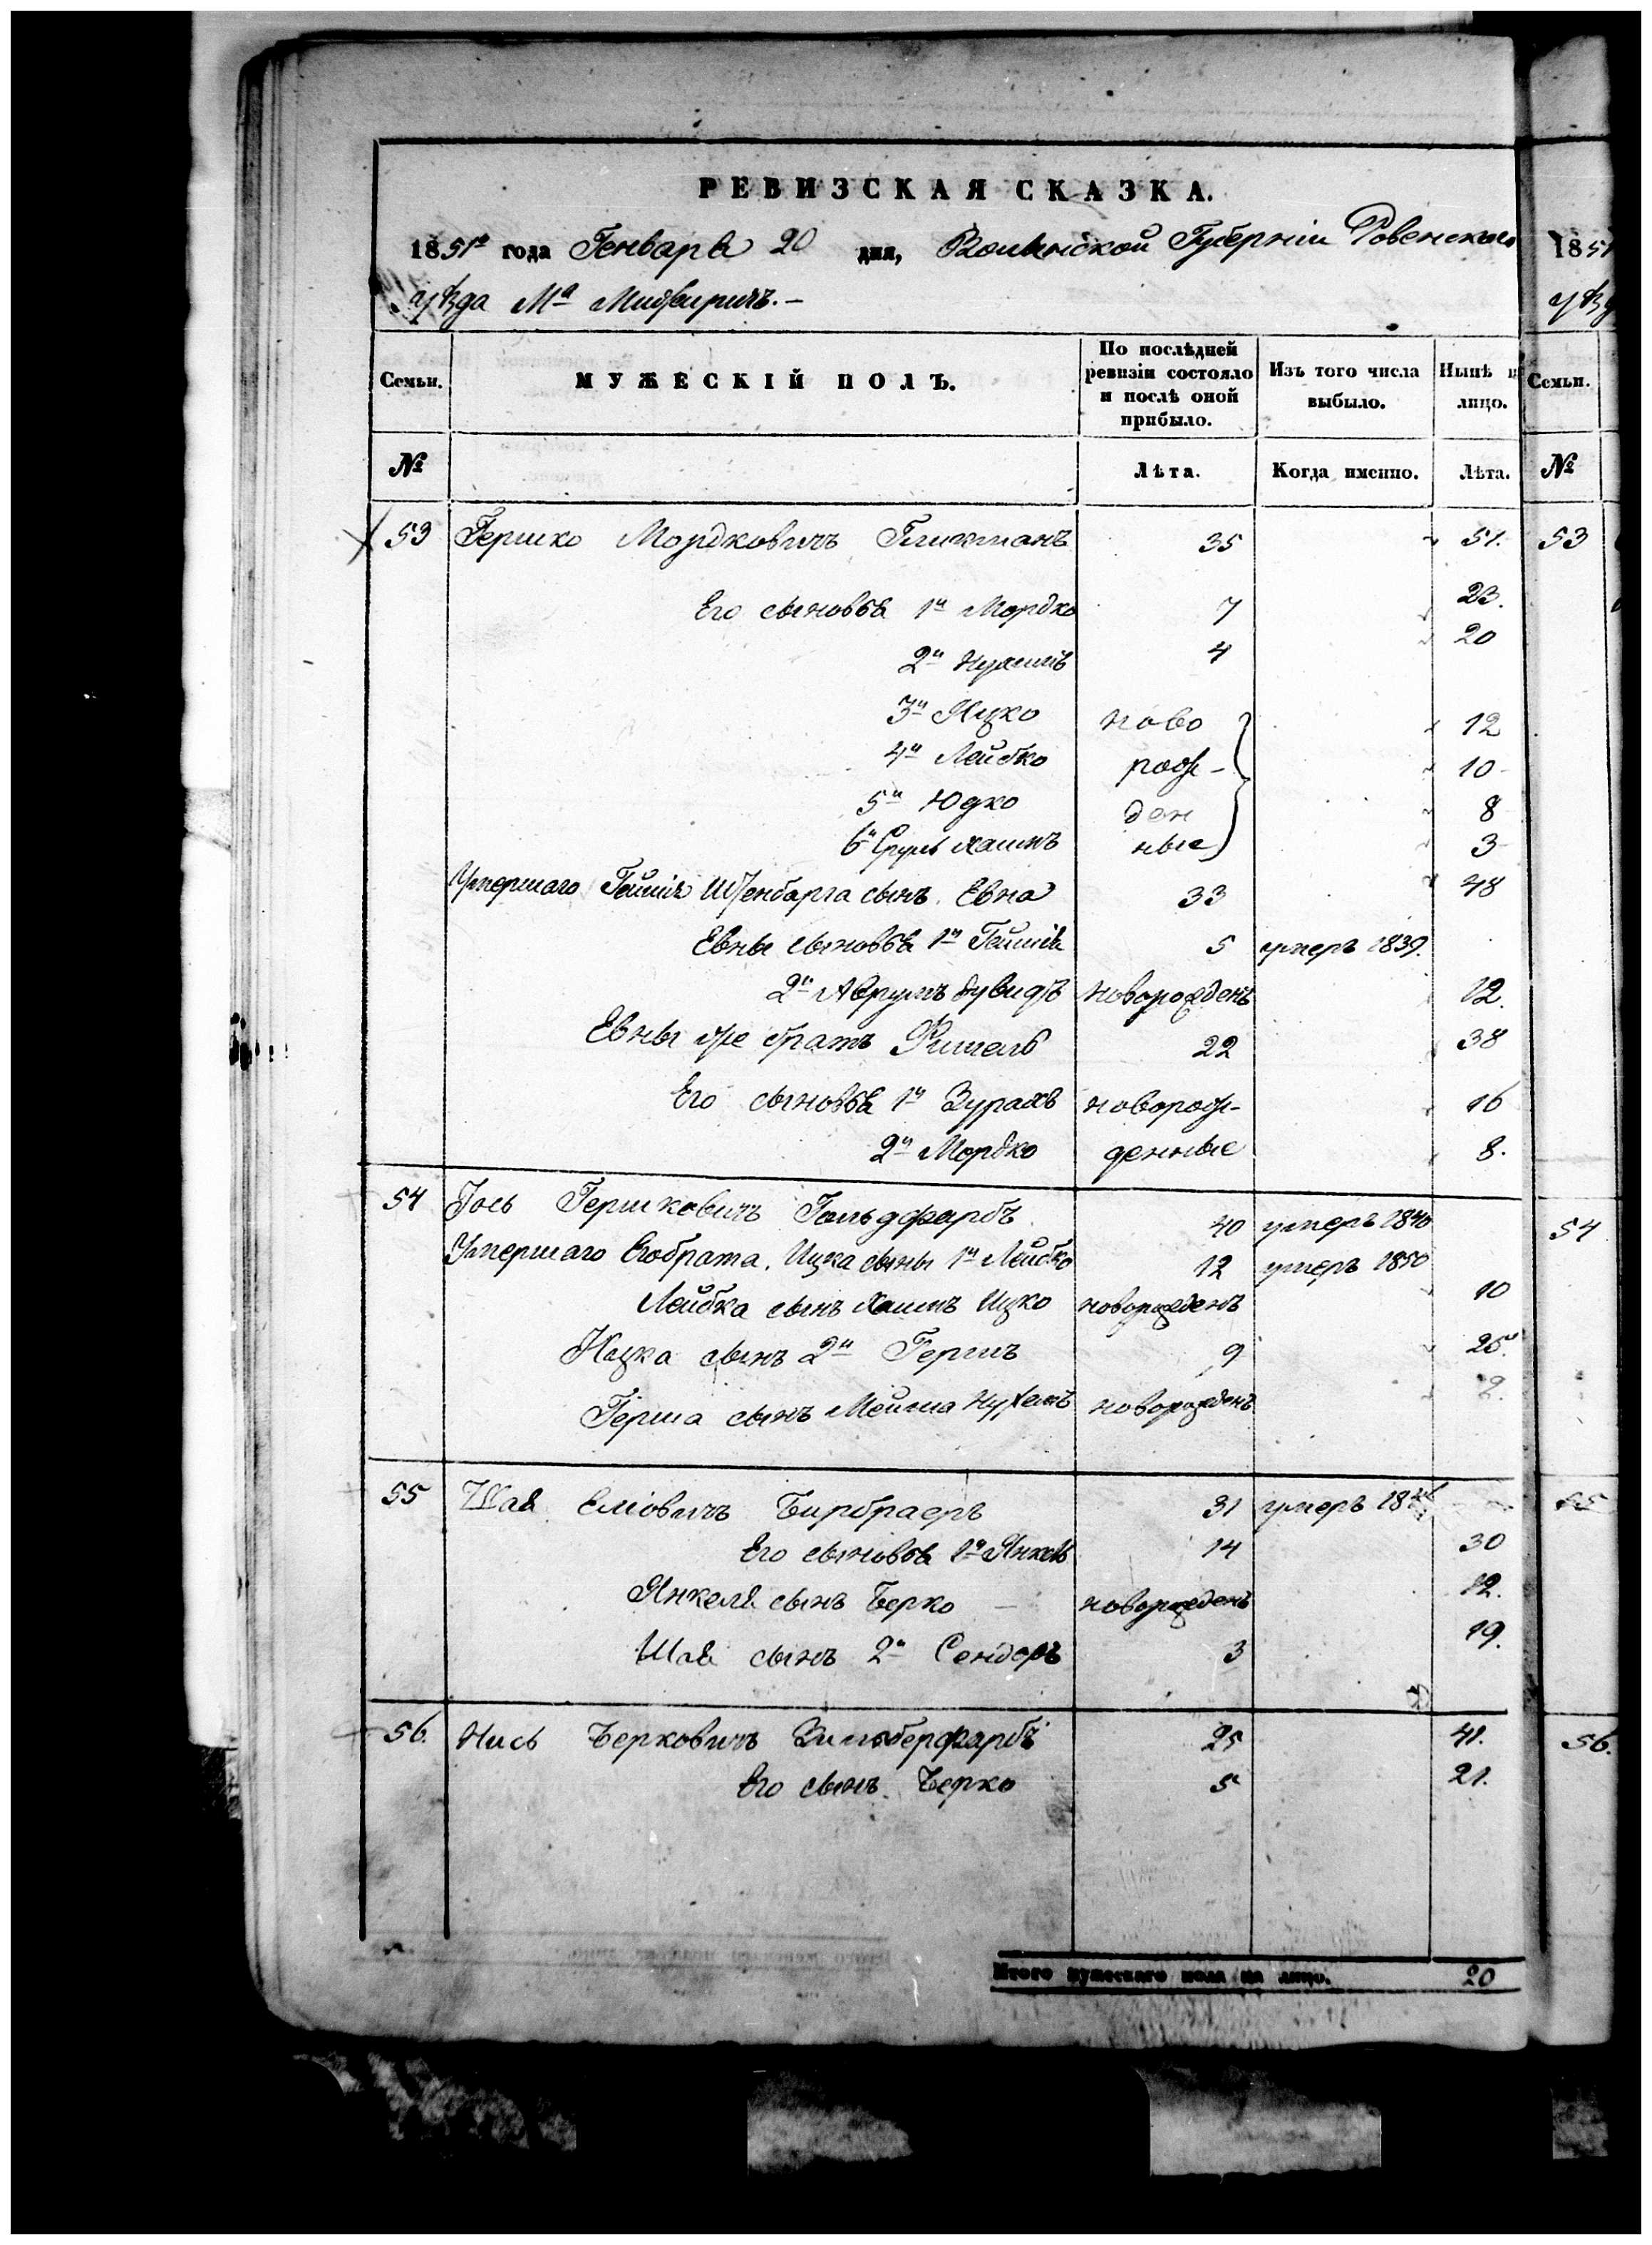 РЕВИЗСКАЯ СКАЗКА.
1851го года Генваря 20 дня, Волынской Губерніи Ровенскаго
уѣзда Мa Межиричъ. –
Семьи. МУЖЕСКІЙ ПОЛЪ. По послѣдней ревизіи состояло и послѣ оной прибыло. Изъ того числа выбыло. Нынѣ н лицо.
№ Лѣта. Когда именно. Лѣта.
53 Гершко Мордковичъ 35 51.
Его сыновья 1й Мордко 7 23.
2й Нухимъ 4 20
3й Ицко ново 12
4й Лейбко рож- 10
5й Юдко ден 8
6й Сруль Хаимъ ные 3
Умершаго сынъ Евна 33 48
Евны сыновья 1й 5 умеръ 1839.
2й Аврумъ Дувидъ новорожденъ 12.
Евны же братъ Фишель 22 38
Его сыновья 1й Зурахъ новорож- 16
2й Мордко денные 8.
54 Іось Гершковичъ Гольдфарбъ 40 умеръ 1840
Умершаго Его брата Ицка сыны 1й Лейбко 12 умеръ 1850
Лейбка сынъ Хаимъ Ицко новорожденъ 10
Ицка сынъ 2й Гершъ 9 25.
Герша сынъ Мейша Нухимъ новорожденъ 2.
55 Шая Еліовичъ Бирбраеръ 31 умеръ
Его сыновья 1й Янкель 14 30
Янкеля сынъ Берко – новорожденъ 12.
Шая сынъ 2й Сендеръ 3 19.
56. Нись Берковичъ Зильберфарбъ 25 41.
Его сынъ Берко 5 21.
Итого мужескаго пола на лицо. 20
1851
уѣзд
Семьи.
№
53
54
55
56.